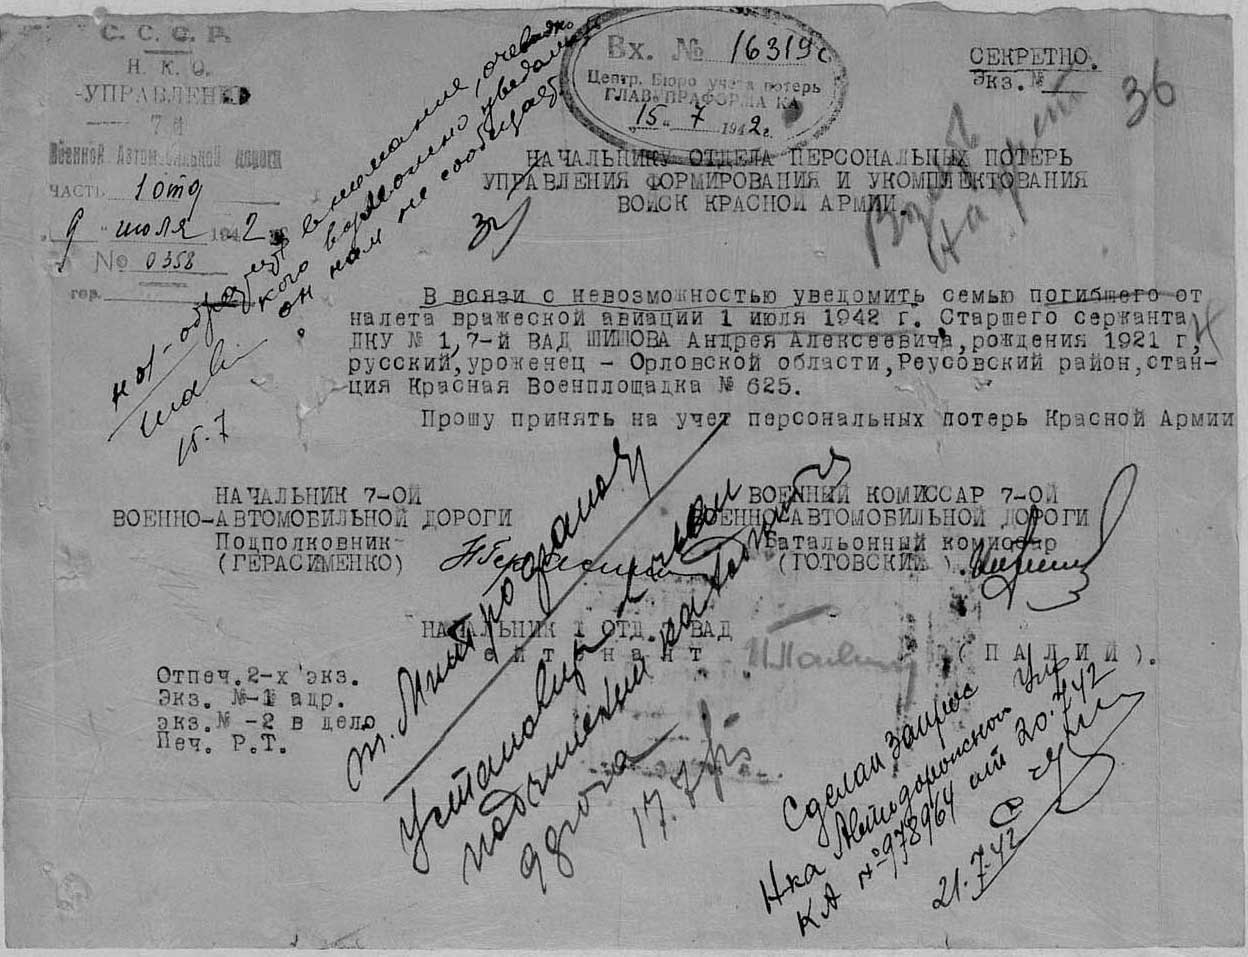 С. С. С. Р.
Н. К. О.
УПРАВЛЕНИЕ
7й
Военной Автомобильной дороги
ЧАСТЬ 1 отд
"9" июля 1942 г.
№ 0358
гор.
Вх. № 16319с
Центр. Бюро учета потерь
ГЛАВУПРАФОРМА КА
"15" 7 1942 г.
СЕКРЕТНО.
Экз.№
36
НАЧАЛЬНИКУ ОТДЕЛА ПЕРСОНАЛЬНЫХ ПОТЕРЬ
УПРАВЛЕНИЯ ФОРМИРОВАНИЯ И УКОМПЛЕКТОВАНИЯ
ВОЙСК КРАСНОЙ АРМИИ.
внимание, очевидно
кого возможно уведомить
он нам не сообщает
15.7
В связи с невозможностью уведомить семью погибшего от
налета вражеской авиации 1 июля 1942 г. Старшего сержанта
ДКУ № 1, 7-й ВАД ШИШОВА Андрея Алексеевича, рождения 1921 г,
русский, уроженец - Орловской области, Реусовский район, стан-
ция Красная Военплощадка № 625.
Прошу принять на учет персональных потерь Красной Армии
НАЧАЛЬНИК 7-ОЙ
ВОЕННО-АВТОМОБИЛЬНОЙ ДОРОГИ
Подполковник-
(ГЕРАСИМЕНКО)
ВОЕННЫЙ КОМИССАР 7-ОЙ
ВОЕННО-АВТОМОБИЛЬНОЙ ДОРОГИ
Батальонный комиссар
(ГОТОВСКИЙ).
НАЧАЛЬНИК 1 ОТД. 7 ВАД
(ПАЛИЙ).
Отпеч. 2-х экз.
Экз. №-1 адр.
экз.№ -2 в дело
Печ. Р.Т.
17.7
Сделан запрос Упр
КА №978964 от 20.7.42
21.7.42